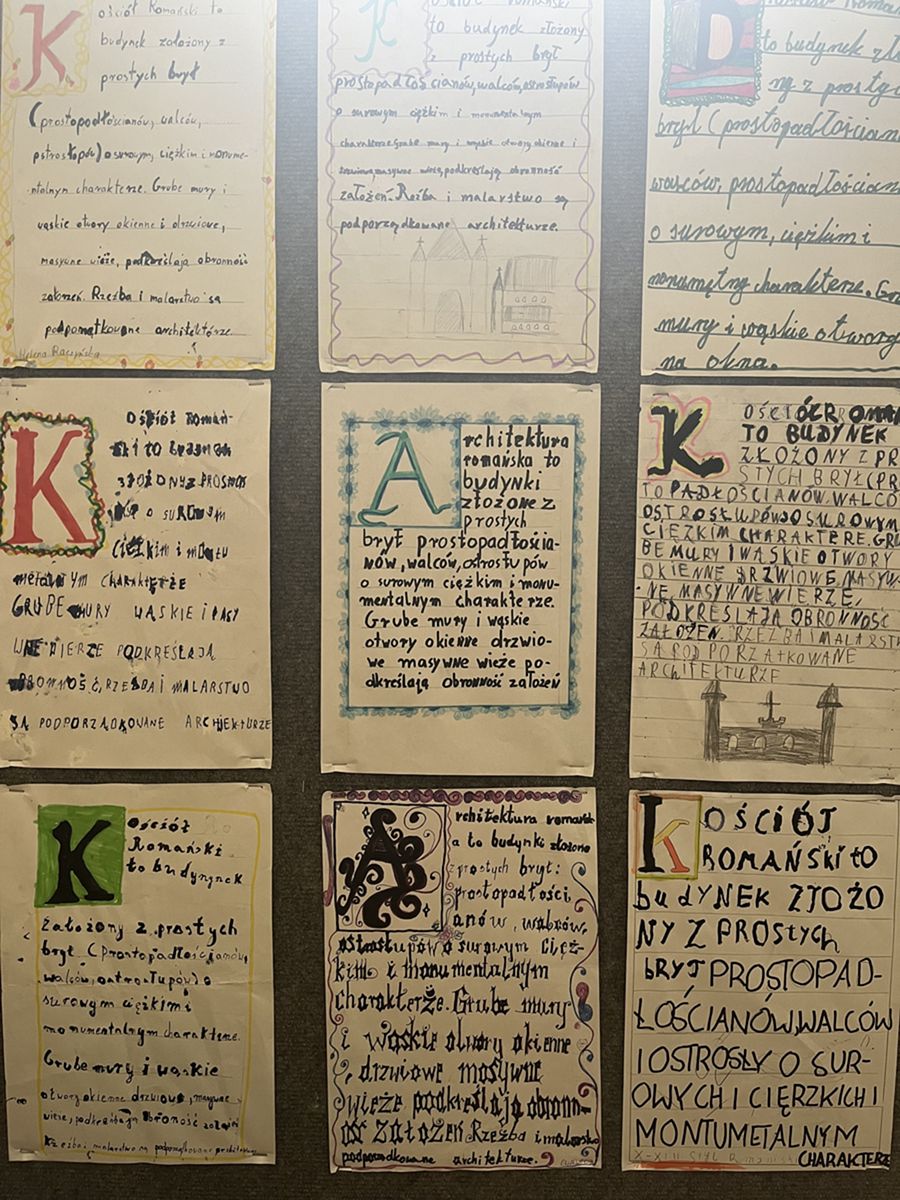 K ościół Romański to
budynek założony z
prostych brył
(prostopodłościanów, walców,
ostrosłupów) o surowym, ciężkim i monume-
ntalnym charakterze. Grube mury i
wąskie otwory okienne i drzwiowe,
masywne wieże, podkreślają obronność
założeń. Rzeźba i malarstwo są
architektórze.
Helena Raczyńska
K ościół romański
to budynek złożony
z prostych brył
prostopadłościanów, walców, ostrosłupów
o surowym ciężkim i monumentalnym
charakterze. Grube mury i wąskie otwory okienne i
drzwiowe, masywne wieże, podkreślają obronność
założeń. Rzeźba i malarstwo są
podporządkowane architekturze.
to budynek zło
ny z prostyc
brył (prostopadłościan
walców, prostopadłościan
o surowym, ciężkim i
monumętny charakterze. Gr
mury i wąskie otwory
na okna.
K ościół Romań-
ski to
złożony z prostych
o surowym
Ciężkim i
charakterze
GRUBE MURY WĄSKIE I
WNE WIERZE PODKREŚLAJĄ
OBRONNOŚĆ, RZEŹBA I MALARSTWO
SĄ PODPORZĄDKOWANE ARCHIEKTURZE
A rchitektura
romańska to
budynki
złożone z
prostych
brył prostopadłościa-
nów, walców, ostrosłu pów
o surowym ciężkim i monu-
mentalnym charakte rze.
Grube mury i wąskie
otwory okienne drzwio-
we masywne wieże po-
dkreślają obronność założeń
K OŚCIÓŁ ROMAŃ
TO BUDYNEK
ZŁOŻONY Z PR
STYCH BRYŁ (PR
TO PADŁOŚCIANÓW, WALCÓ
OSTROSŁUPÓW O SUROWYM
CIĘŻKIM CHARAKTERE. GRU
BE MURY I WĄSKIE OTWORY
OKIENNE DRZWIOWE, MASYW
NE, MASYWNE WIERZE,
PODKREŚLAJĄ OBRONNOŚĆ
ZAŁOŻEN. RZEŹBA I MALARST
SĄ POD PORZĄTKOWANE
ARCHITEKTURZE
K ościół
Romański
to budynynek
założony z prostych
brył (prostopadłościanów,
walców, ostrosłupów) o
surowym ciężkim i
monumentalnym charakterze.
Grube mury i wąskie
otwory okienne drzwiowe, masywne
wieże, podkreślają obroność założeń
Rzeźba i malarstwo są
A rchitektura romańsk
a to budynki złożone
z prostych brył:
prostopadłości
anów, walców,
ostrosłupów o surowym cięż-
kim i monumentalnym
charakterze. Grube mury
i wąskie otwory okienne
drzwiowe masywne
wieże podkreślają obronn-
ość założeń. Rzeźba i malarstwo
podporządkowane architekturze.
K OŚCIÓŁ
ROMAŃSKI tO
budYNEK ZŁOŻO
NY Z PROStych
bRYŁ PROSTOPAD-
ŁOŚCIANÓW, WALCÓW
I OSTROSŁY O SUR-
OWYCH I CIĘRZKICH I
MONTUMETALNYM
CHARAKTERZE